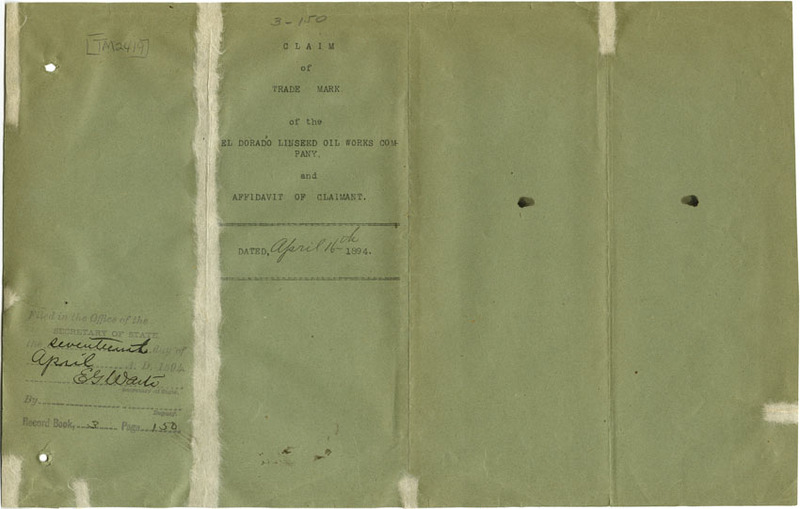 [TM2419]
3-150
CLAIM
of
TRADE MARK
of the
EL DORADO LINSEED OIL WORKS COM-
PANY.
and
AFFIDAVIT OF CLAIMANT.
DATED, April 16th 1894.
Filed in the Office of the
SECRETARY OF STATE
the seventeenth day of
April A. D. 1894
E G Waite
Secretary of State.
By
Deputy.
Record Book, 3 Page 150